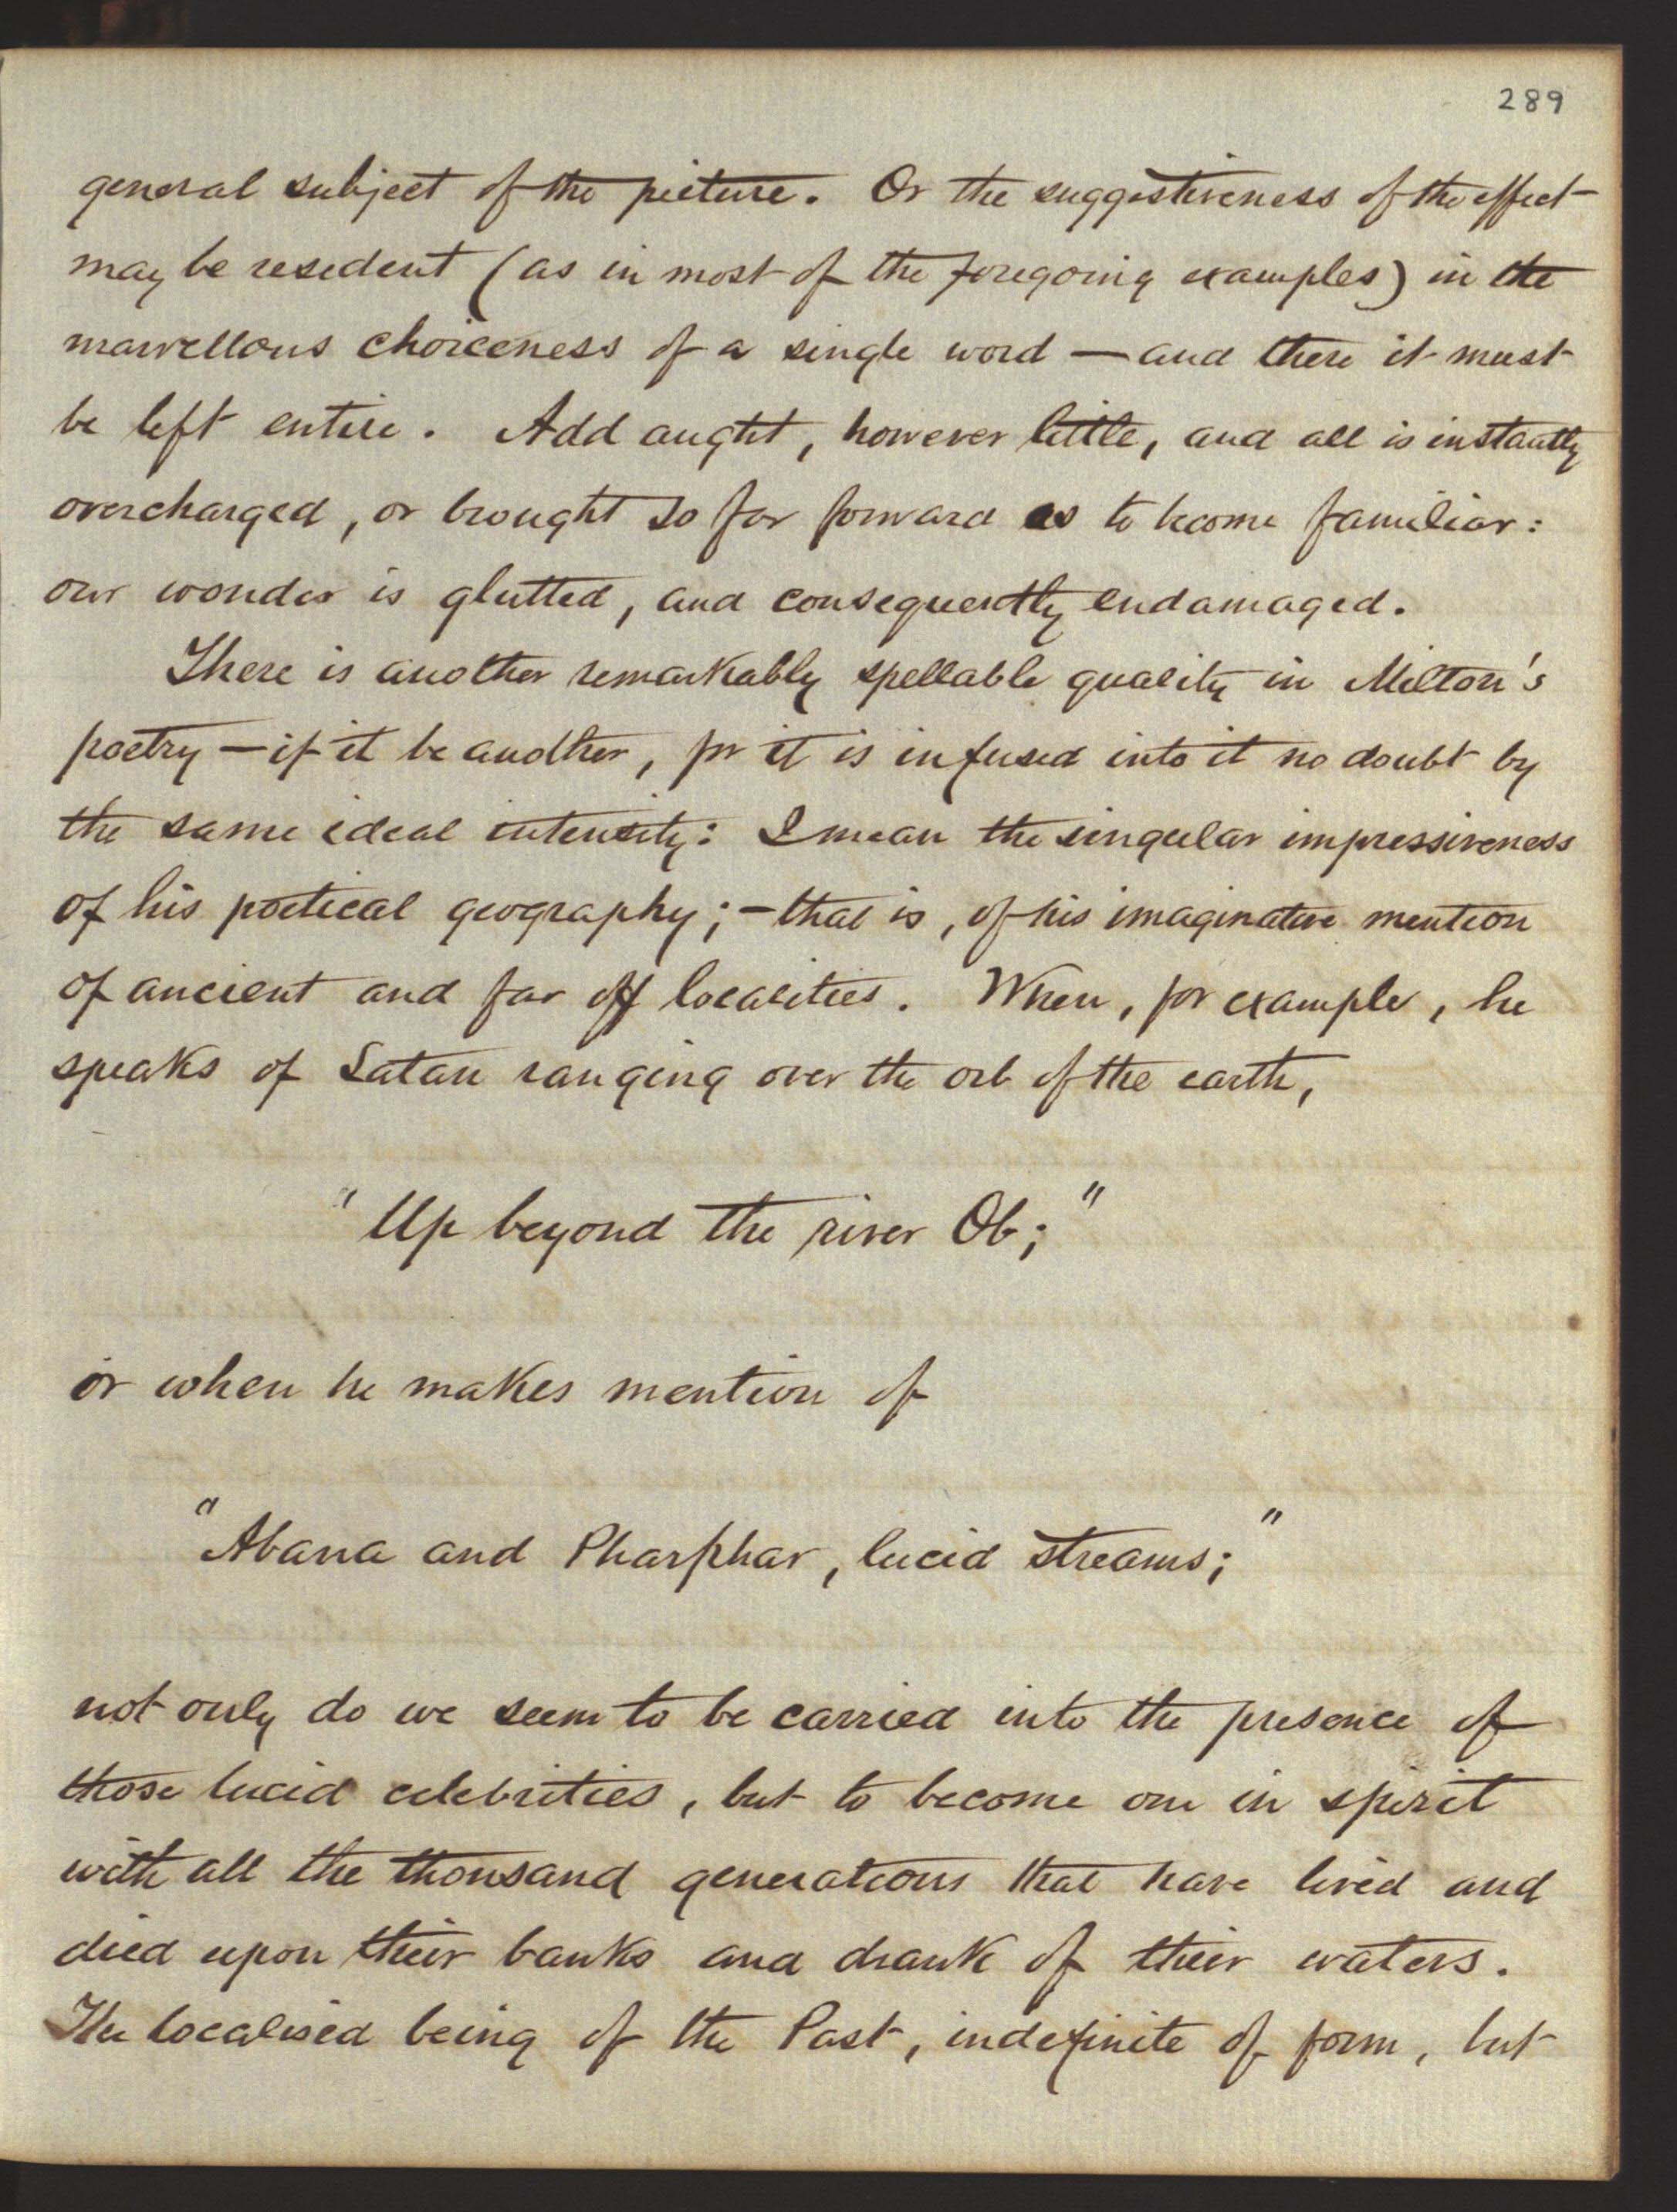 289
general subject of the picture. Or the suggestiveness of the effect
may be resident (as in most of the foregoing examples) in the
marvellous choiceness of a single word — and there it must
be left entire. Add aught, however little, and all is instantly
overcharged, or brought so far forward as to become familiar:
our wonder is glutted, and consequently endamaged.
There is another remarkably spellable quality in Milton's
poetry — if it be another, for it is infused into it no doubt by
the same ideal intensity: I mean the singular impressiveness
of his poetical geography; — that is, of his imaginative mention
of ancient and far off localities. When, for example, he
speaks of Satan ranging over the orb of the earth,
"Up beyond the river Ob;"
or when he makes mention of
"Abana and Pharphar, lucid streams;"
not only do we seem to be carried into the presence of
those lucid celebrities, but to become one in spirit
with all the thousand generations that have lived and
died upon their banks and drank of their waters.
The localised being of the Past, indefinite of form, but